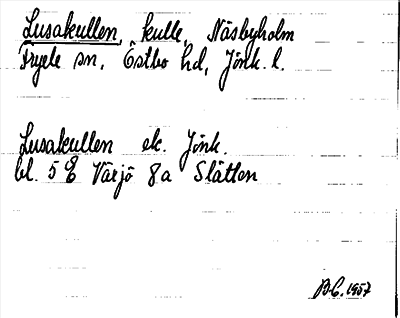 Lusakullen, kulle, Näsbyholm
Fryele sn, Östbo hd, Jönk. l.
Lusakullen ek. Jönk.
bl. 5 E Värjö 8a Slätten
B.C. 1957